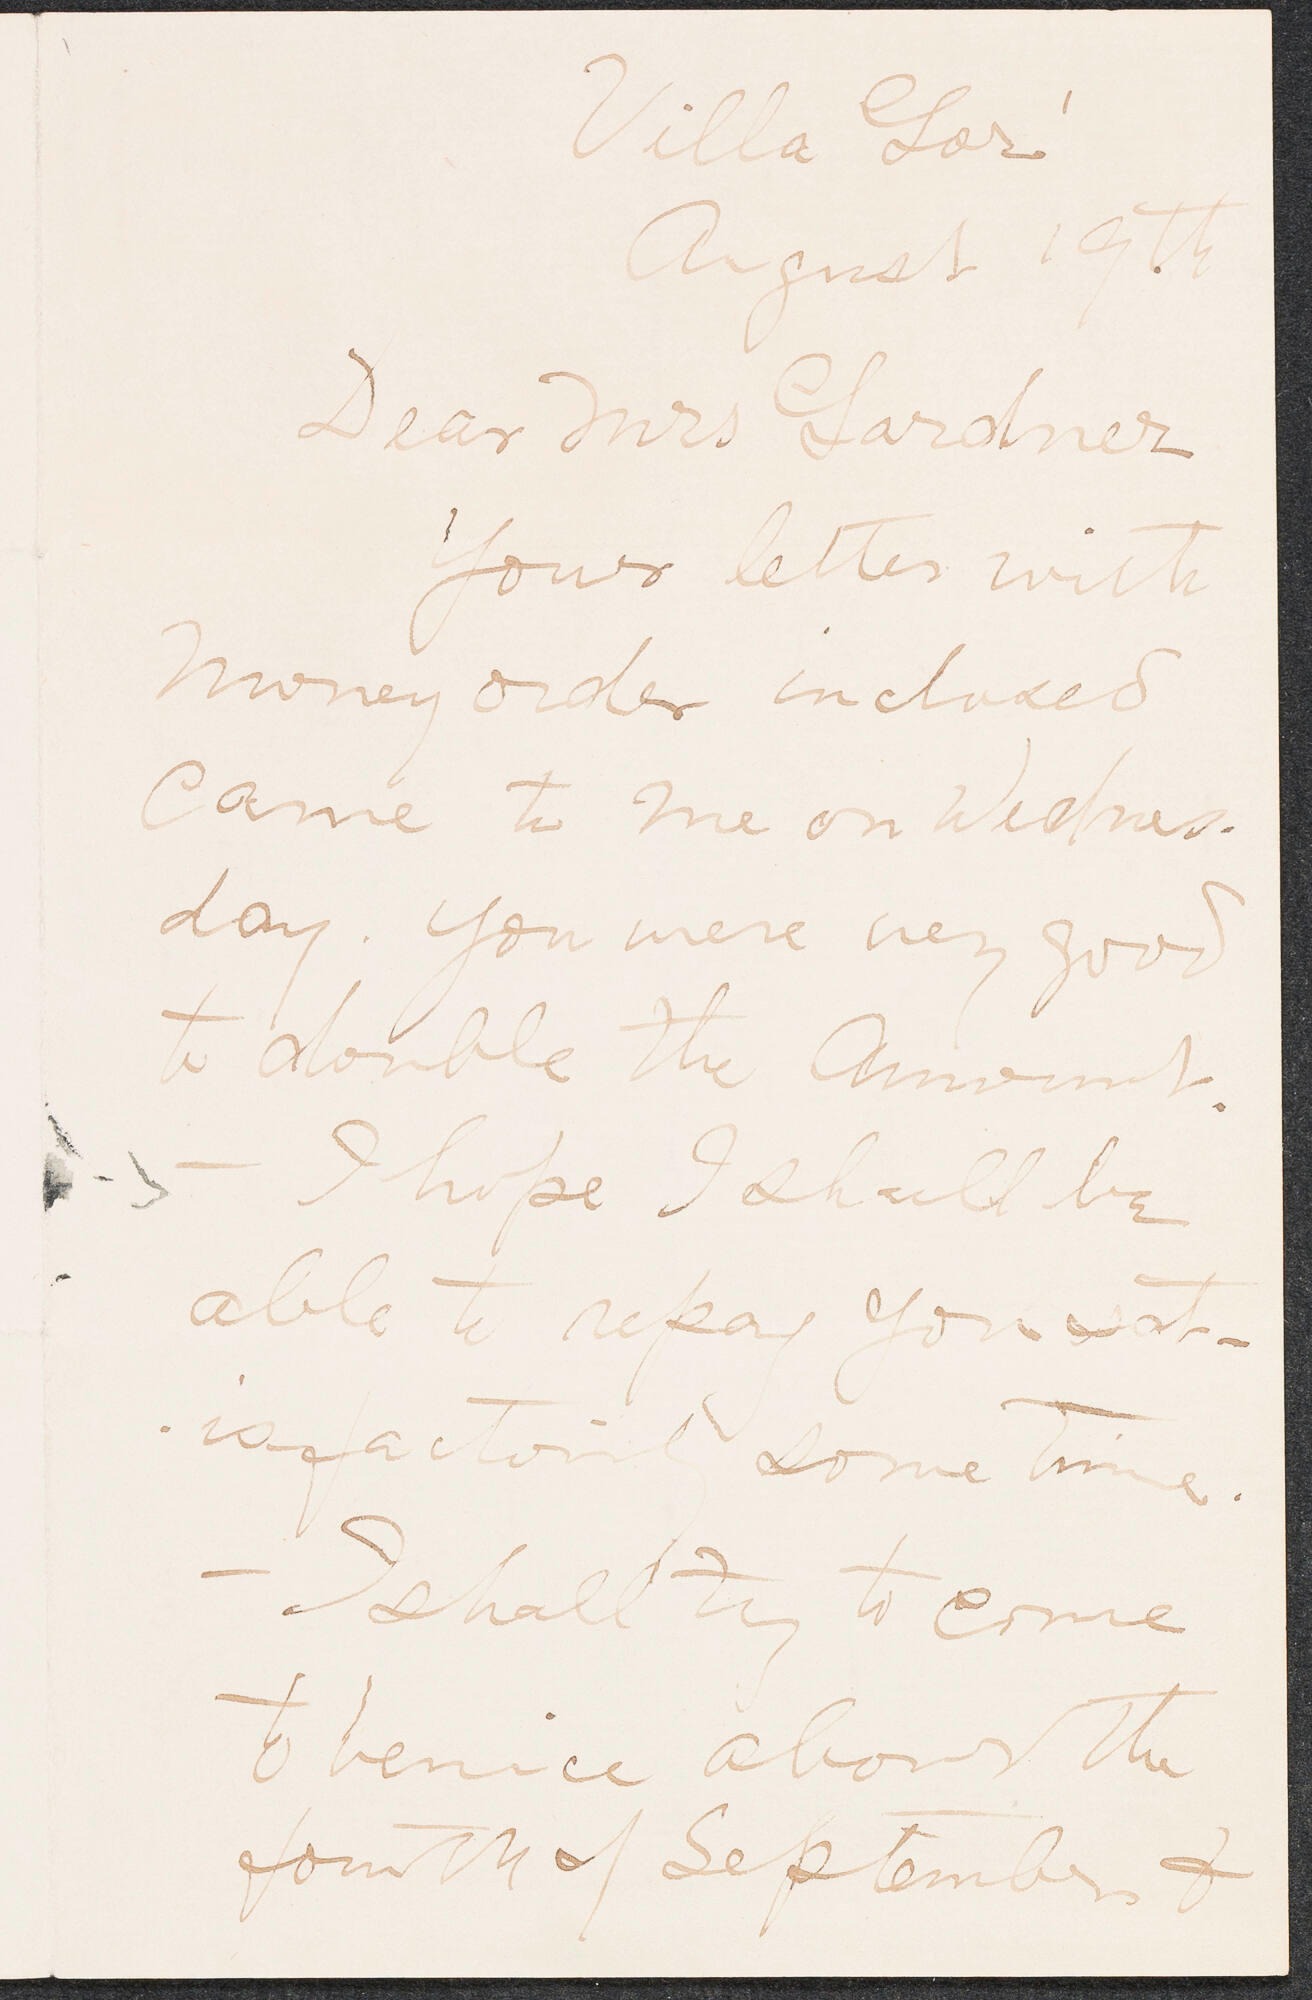 Villa Gori
August 19th
Dear Mrs Gardner
Your letter with
money order inclosed
came to me on Wednes-
day. you were very good
to double the Amount.
- I hope I shall be
able to repay you sat-
isfactorily some time.
- I shall try to come
to Venice about the
fourth of September &